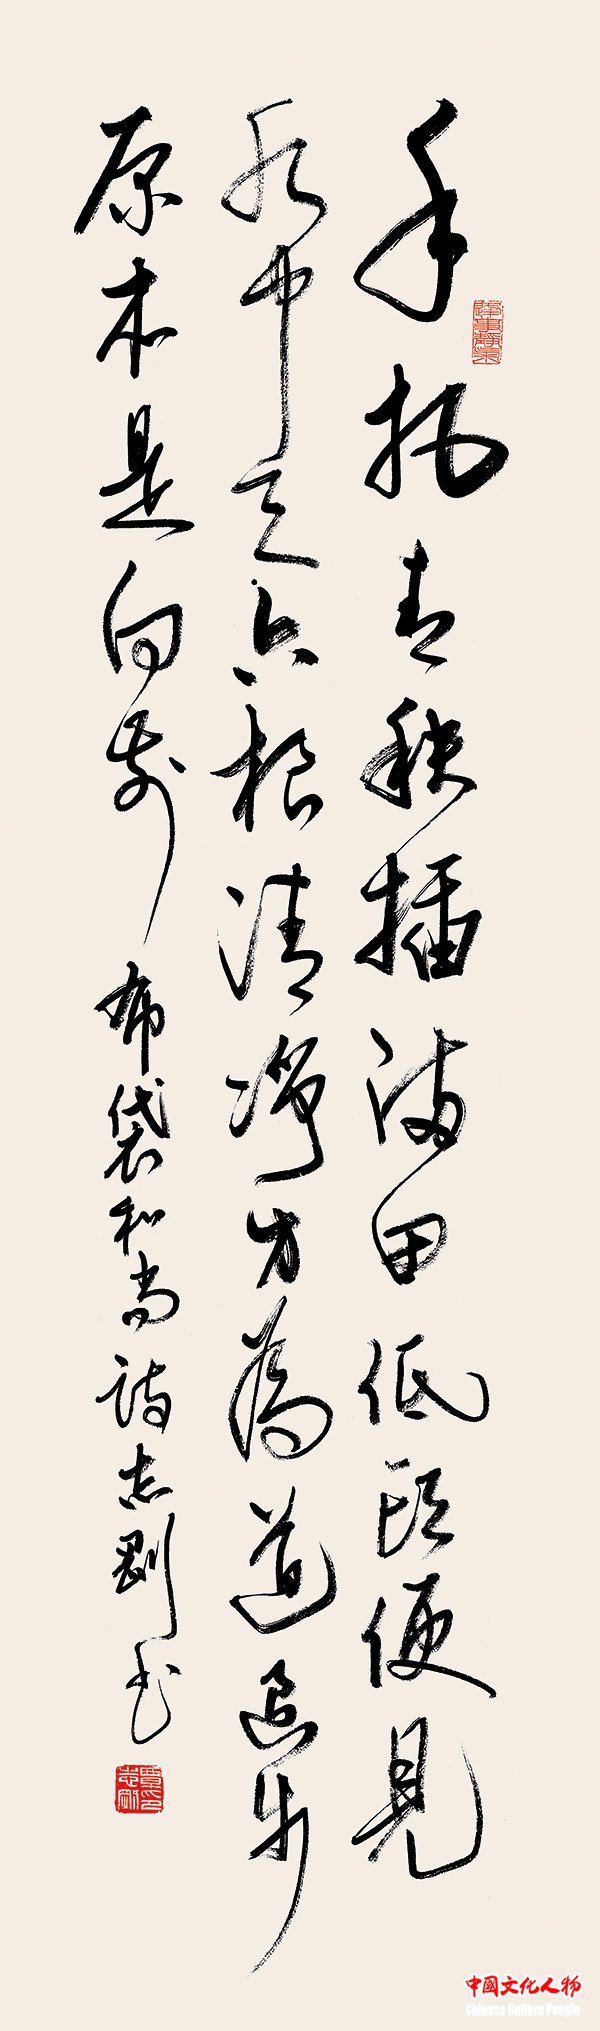 手把青秧插滿田低頭便見
水中天六根清淨方為道退步
原本是向前 布袋和尚詩志剛书
賈印志剛
中國文化人物
Chinese Culture People